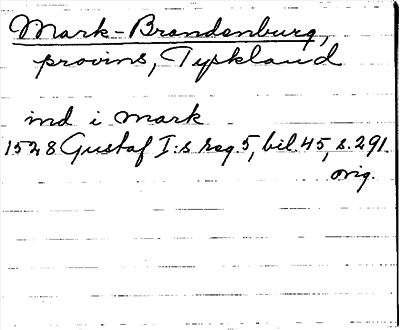 Mark-Brandenburg,
provins, Tyskland
ind i mark
1528 Gustaf I:s reg. 5, bil. 45, s. 291.
orig.